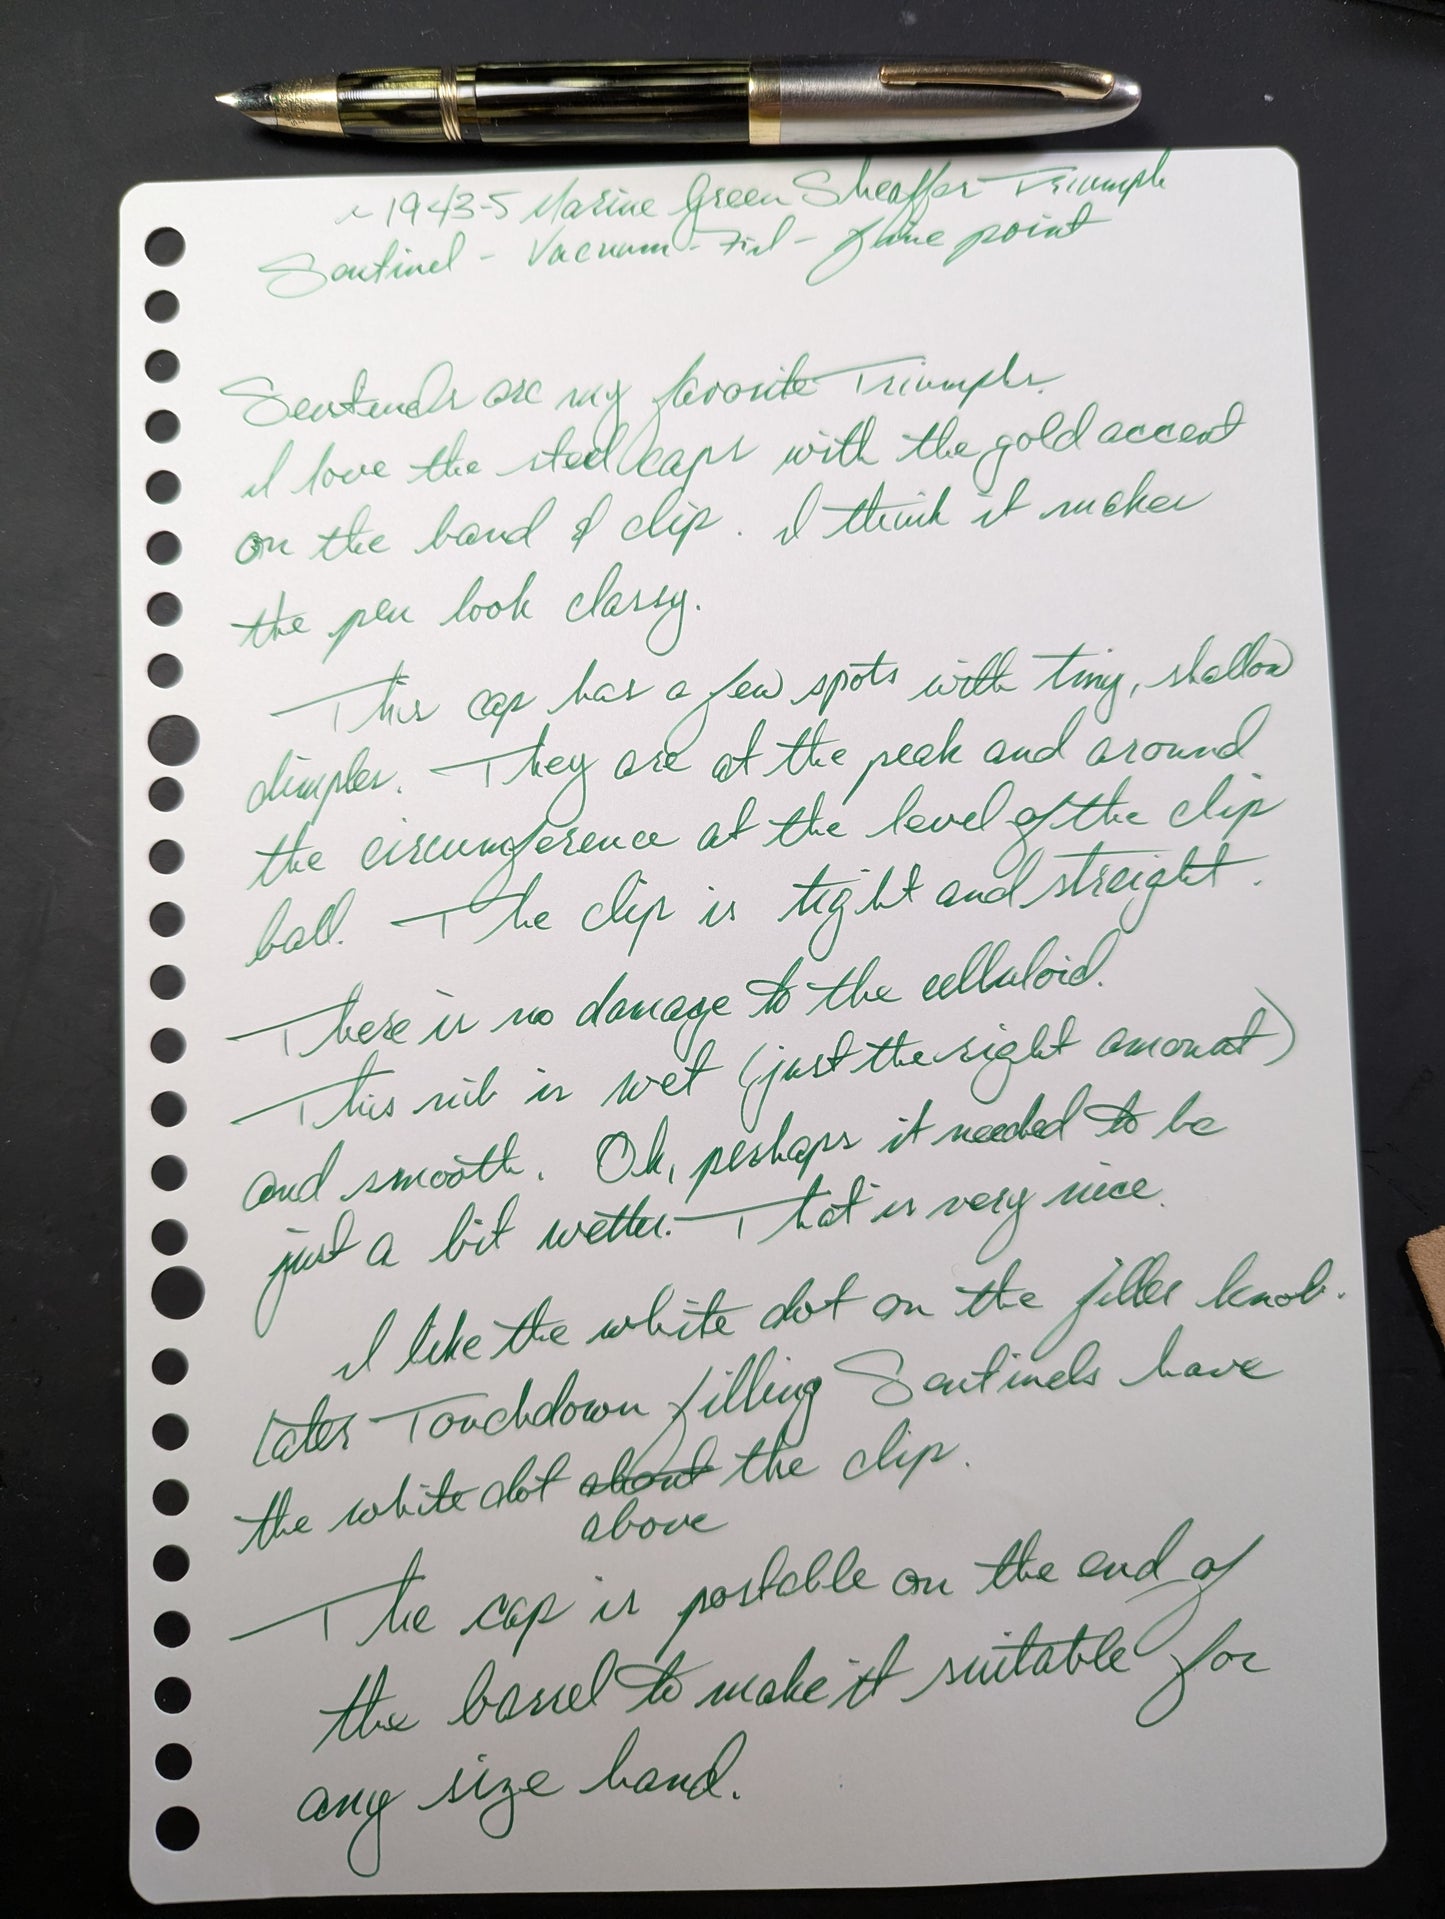 ~ 1943-5 Marine Green Sheaffer Triumph
Sentinel - Vacuum-Fil - fine point
Sentinels are my favorite Triumphs.
I love the steel caps with the gold accent
on the band & clip. I think it makes
the pen look classy.
This cap has a few spots with tiny, shallow
dimples. They are at the peak and around
the circumference at the level of the clip
ball. The clip is tight and straight.
There is no damage to the celluloid.
This nib is wet (just the right amount)
and smooth. Ok, perhaps it needed to be
just a bit wetter. That is very nice.
I like the white dot on the filler knob.
Later Touchdown filling Sentinels have
the white dot about the clip.
above
The cap is postable on the end of
the barrel to make it suitable for
any size hand.